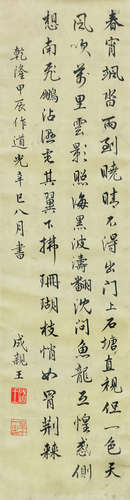 春宵飒沓雨到晓晴不得出门上石塘直视但一色天
风吹万里云影照海黑波涛翻沈问鱼龙互惶惑侧
想南飞鹏沾湿毛其翼下拂珊瑚枝悄如罥荆棘
乾隆甲辰作道光辛巳八月书
成亲王